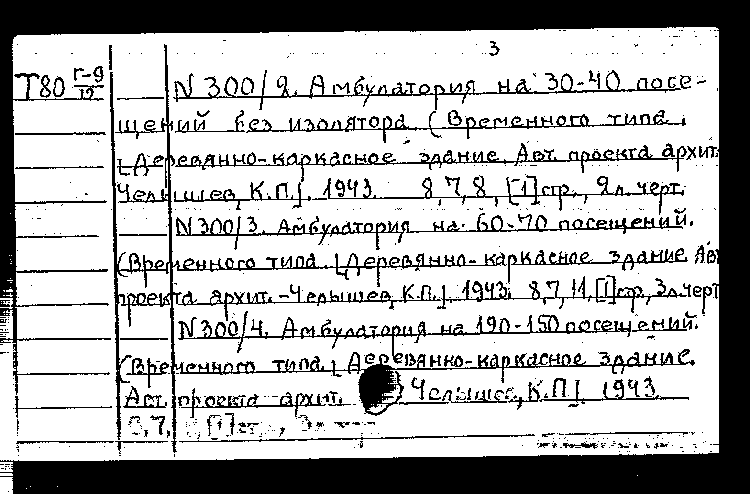 3
Т80 г-9/12 N 300/2. Амбулатория на 30-40 посе-
щений без изолятора (Временного типа.
[Деревянно-каркасное здание. Авт. проекта архит.
Челышев, К.П.]. 1943. 8,7,8, [1] стр., 2 л. черт.
N 300/3. Амбулатория на 60-70 посещений.
(Временного типа. [Деревянно-каркасное здание Авт
проекта архит.-Челышев, К.П.]. 1943. 8,7,11, [1] стр, 3 л. черт
N 300/4. Амбулатория на 120-150 посещений.
(Временного типа. [Деревянно-каркасное здание.
Авт. проекта архит. Челышев, К.П.]. 1943.
8,7, [1] стр.,